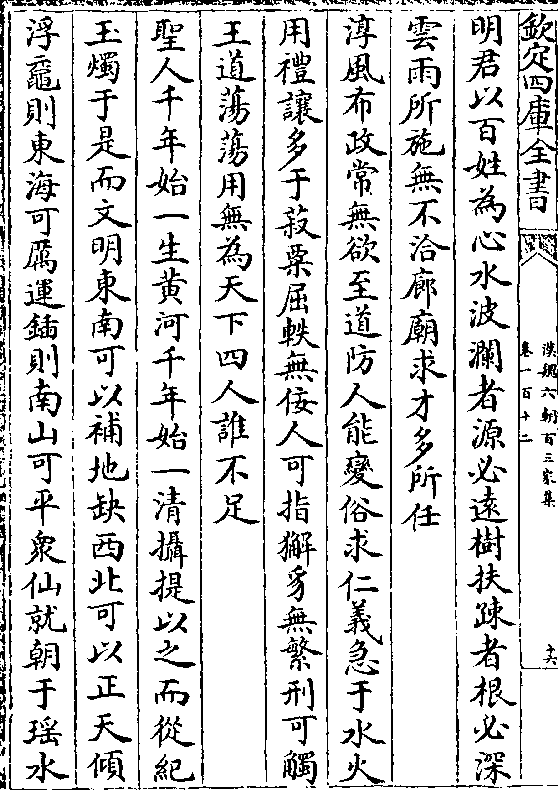 欽定四庫全書
漢魏六朝百三家集
卷一百十二
十六
明君以百姓為心水波瀾者源必遠樹扶疎者根必深
雲雨所施無不洽廊廟求才多所任
淳風布政常無欲至道防人能變俗求仁義急于水火
用禮讓多于菽粟屈軼無佞人可指獬豸無繁刑可觸
王道蕩蕩用無為天下四人誰不足
聖人千年始一生黄河千年始一清攝提以之而從紀
玉燭于是而文明東南可以補地缺西北可以正天傾
浮黿則東海可厲運鍤則南山可平衆仙就朝于瑶水